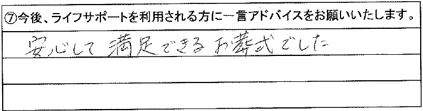 ⑦今後、ライフサポートを利用される方に一言アドバイスをお願いいたします。
安心して満足できるお葬式でした